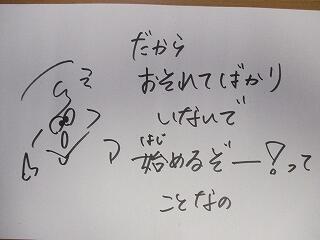 だから
おそれてばかり
いないで
始めるぞー!って
はじ
ことなの